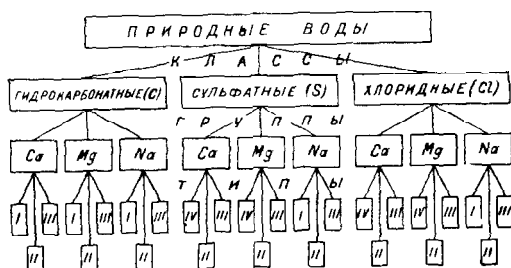 ПРИРОДНЫЕ ВОДЫ
КЛАССЫ
ГИДРОКАРБОНАТНЫЕ (C) СУЛЬФАТНЫЕ (S) ХЛОРИДНЫЕ (Cl)
ГРУППЫ
Ca Mg Na Ca Mg Na Ca Mg Na
ТИПЫ
I III I III I III IV III IV III I III IV III IV III I III
II II II II II II II II II